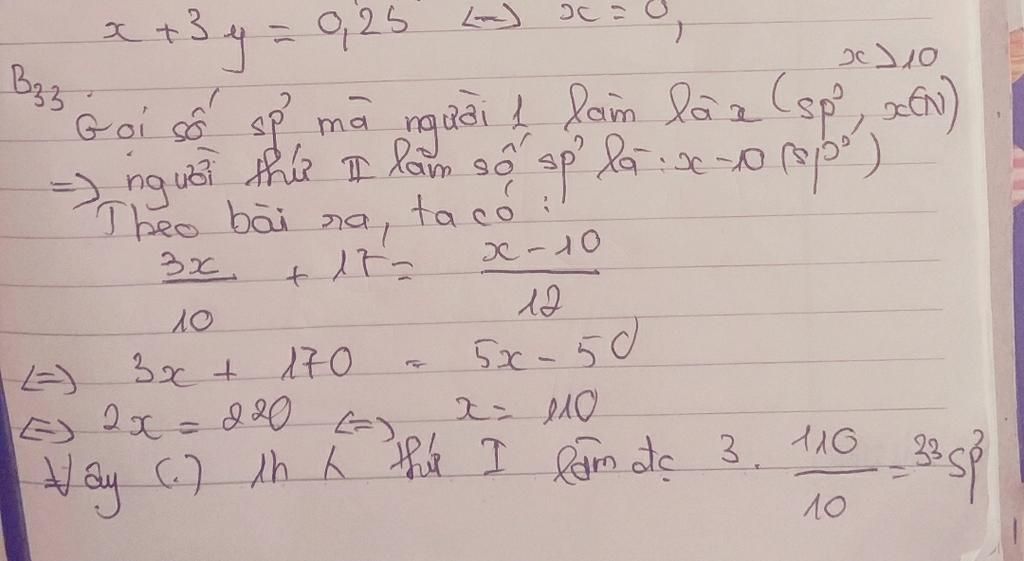 x + 3y = 0,25 <-> x = 0,
x > 10
B33.
Gọi số sp' mà người 1 làm là x (sp', x∈N)
=> người thứ II làm số sp' là: x - 10 (sp')
Theo bài ra, ta có:
3x/10 + 17 = x - 10/12
<=> 3x + 170 = 5x - 50
<=> 2x = 220 <=> x = 110
Vậy (.) 1h k thứ I làm đc 3. 110/10 = 33 sp'